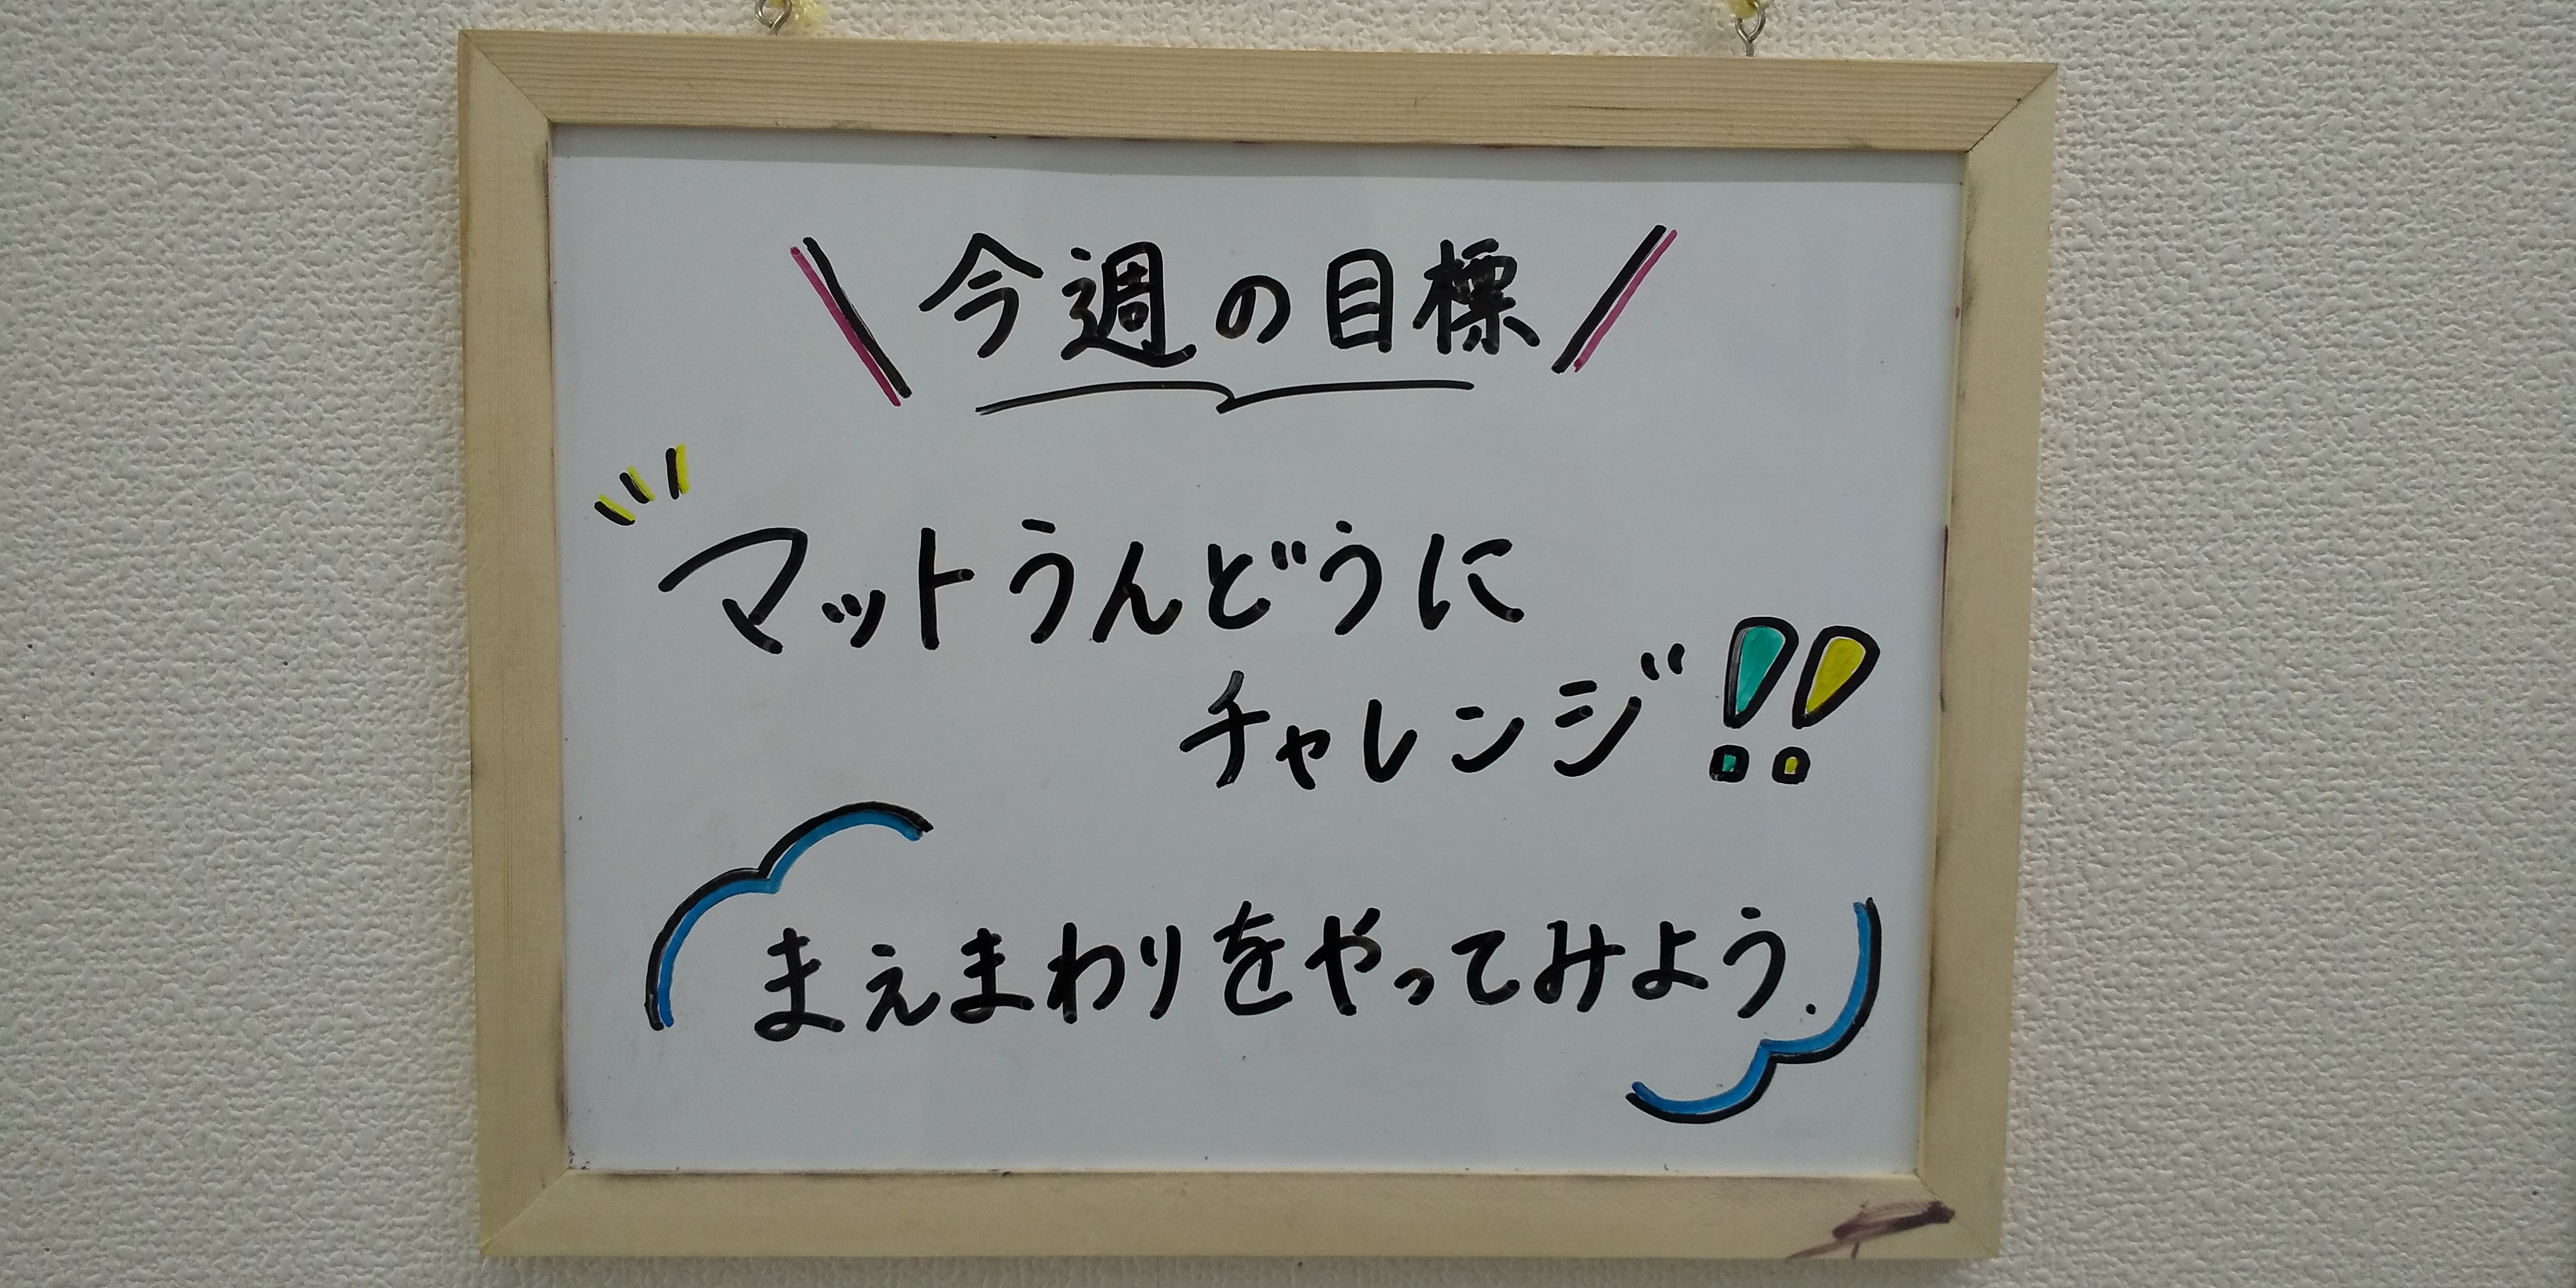 \ 今週の目標 /
マットうんどうに
チャレンジ!!
まえまわりをやってみよう.